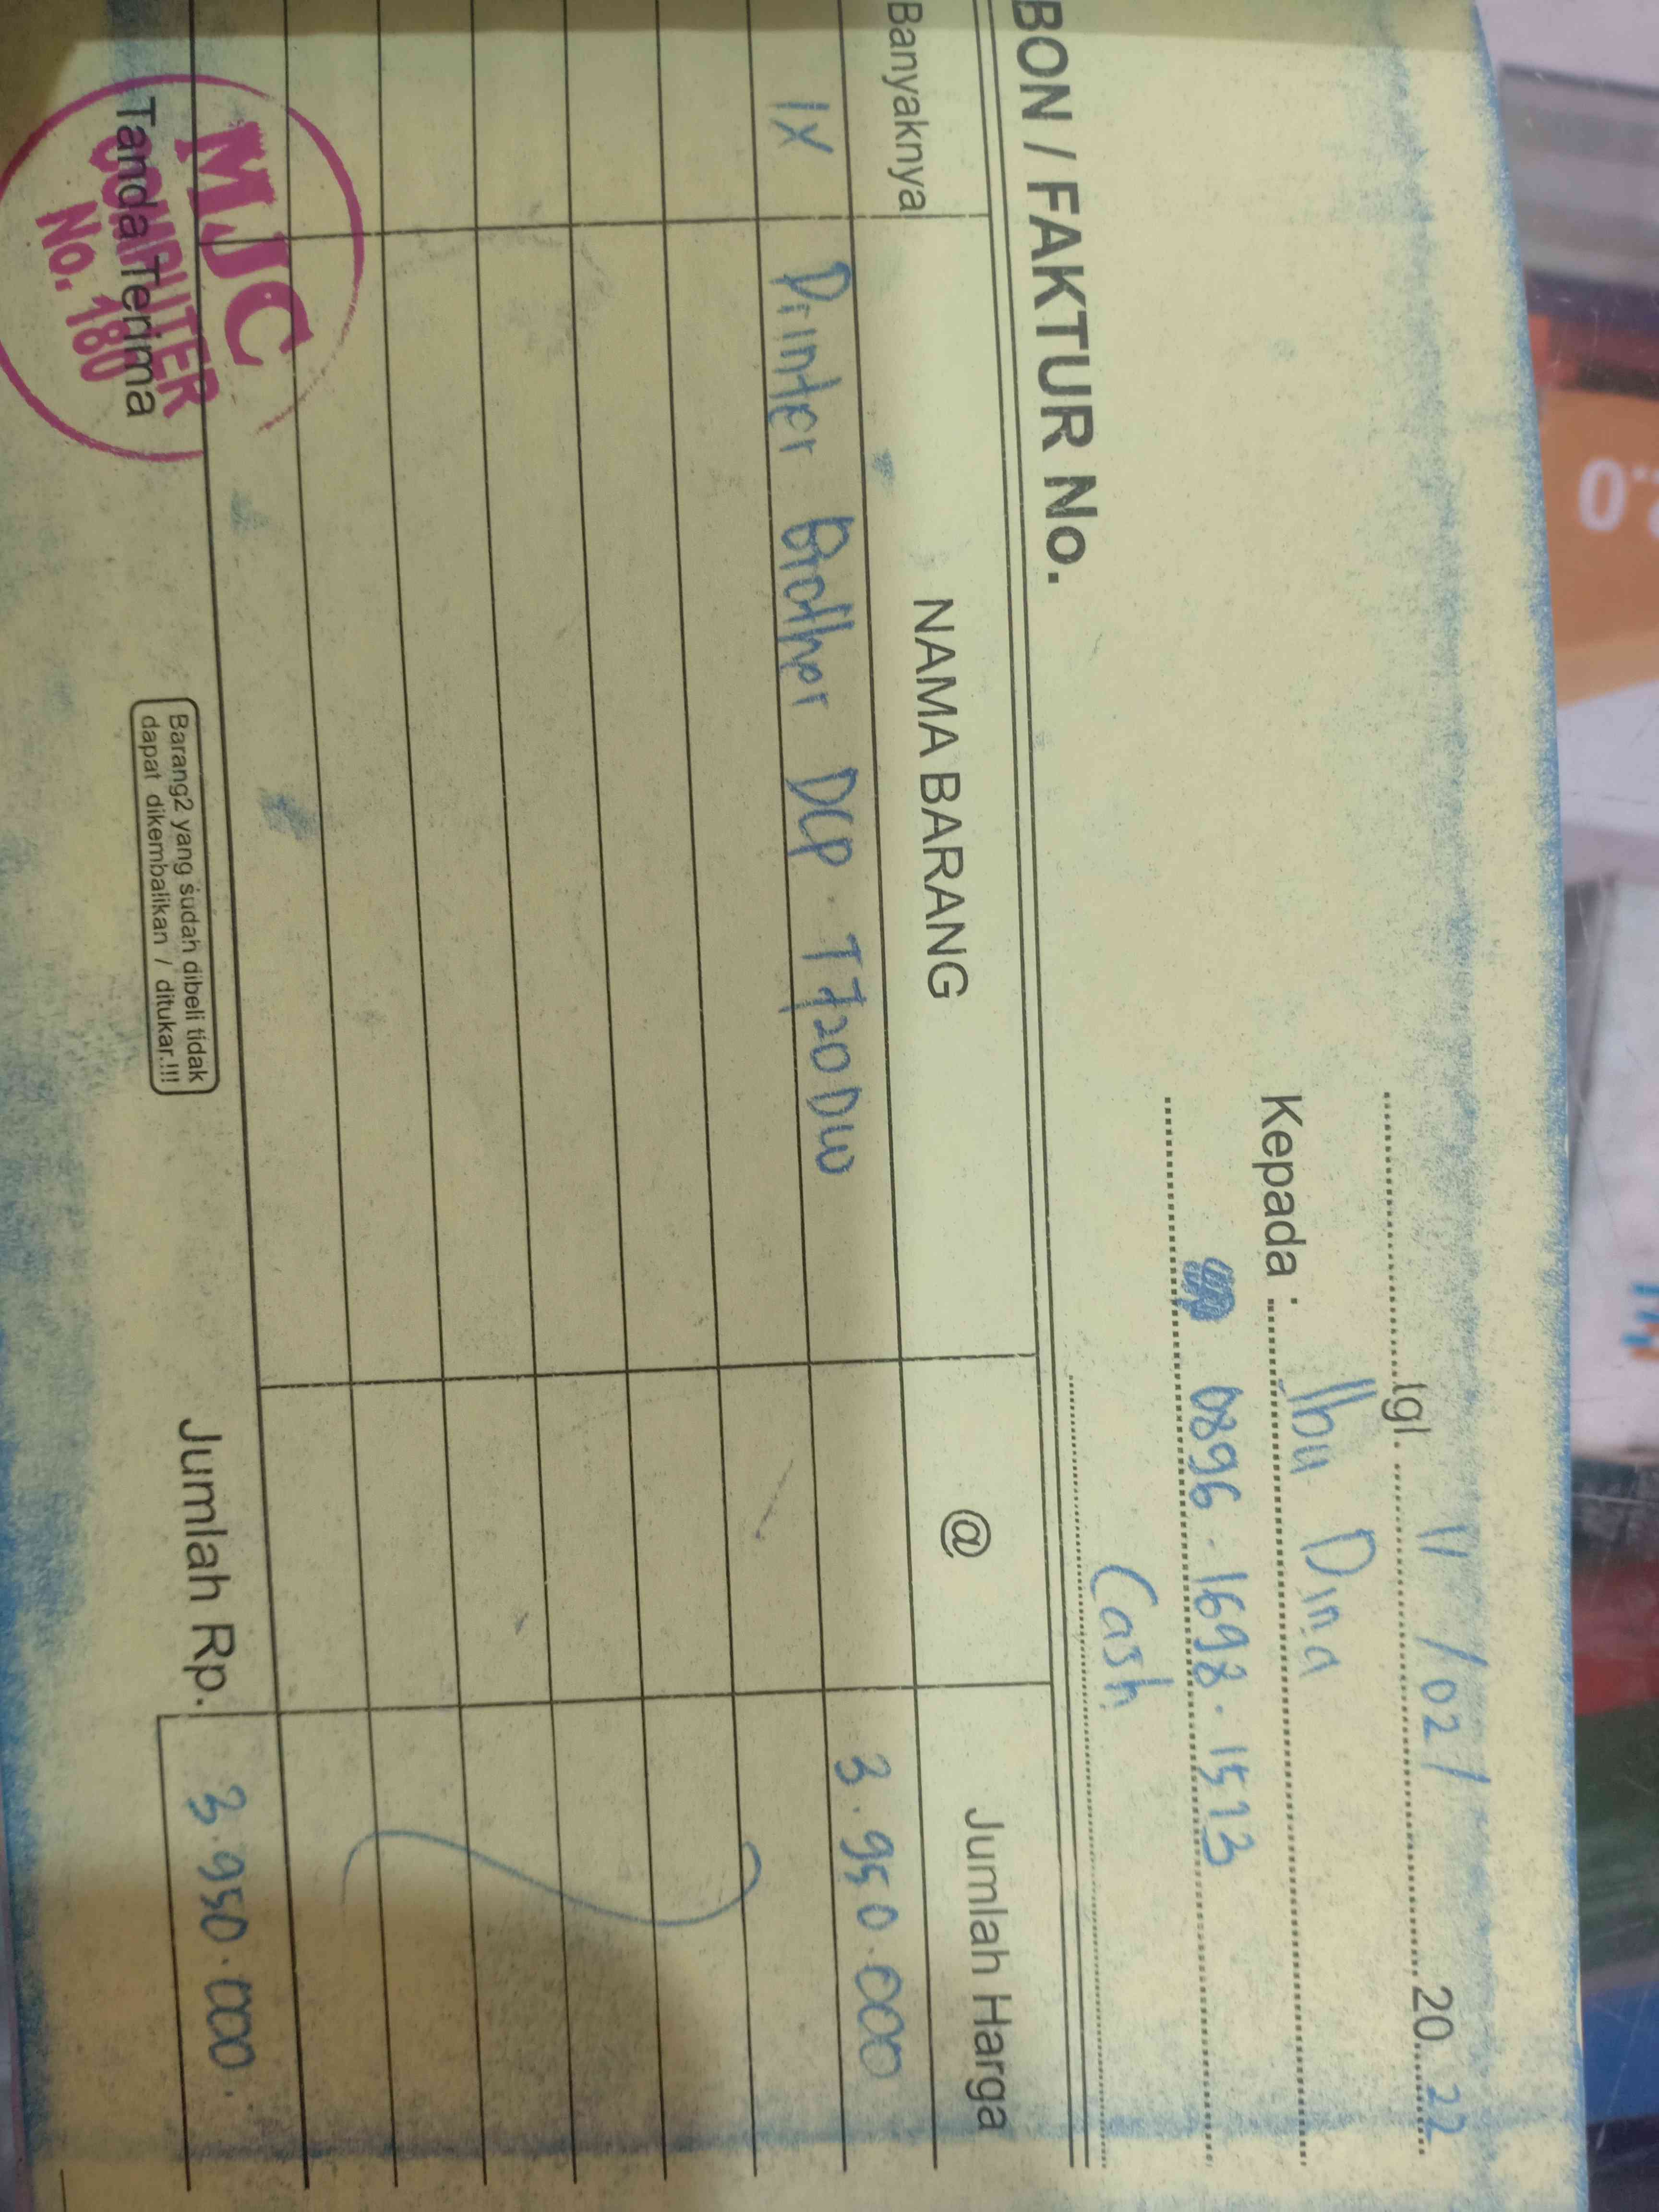 tgl. 11 / 02 / 20 22
Kepada : Ibu Dina
0896 - 1698 . 1513
Cash
BON / FAKTUR No.
Banyaknya NAMA BARANG @ Jumlah Harga
1x Printer Brother DCP . T720DW 3.950.000
Jumlah Rp. 3.950.000.
Tanda Terima
MJC
COMPUTER
No. 180
Barang2 yang sudah dibeli tidak
dapat dikembalikan / ditukar.!!!